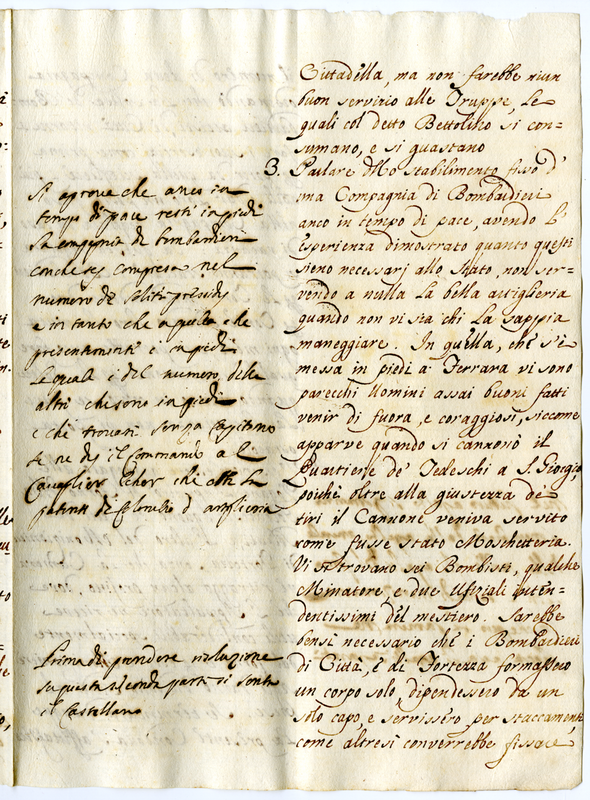 Cittadella, ma non farebbe niun
buon servizio alle Truppe, Le
quali col detto Bettolino si con=
sumano, e si guastano
3. Parlare Mo stabilimento fisso d'
una Compagnia di Bombardieri
anco in tempo di pace, avendo L'
esperienza dimostrato quanto questi
sieno necessari allo Stato, non ser=
vendo a nulla La bella artiglieria
quando non vi sia chi La sappia
maneggiare. In quella, che s'è
messa in piedi a Ferrara vi sono
parecchi Uomini assai buoni fatti
venir di fuora, e coraggiosi, siccome
apparve quando si cannonò il
Quartiere de' Tedeschi a S. Giorgio,
poichè oltre alla giustezza de
tiri il Cannone veniva servito
come fusse stato Moschetteria.
Vi si trovano sei Bombisti, qualche
Minatore, e due Ufiziali inten=
dentissimi del mestiero. Sarebbe
bensì necessario che i Bombardieri
di Città, e di Fortezza formassero
un corpo solo, dipendessero da un
solo capo, e servissero per staccamenti
come altresì converrebbe fissare
Si aprova che anco in
tempo di pace resti in piedi
la compagnia de bombardieri
con che sij compresa nel
numero de soliti presidij
e in tanto che a quella che
presentemente è in piedi
le quali è del numero delle
altre che sono in piedi
e che trovasi senza Capitano
se ne dij il Commando a l
Cavaglier che oltre la
patente di Colonello d'artiglieria
Prima di prendere risoluzione
su questa seconda parte si senta
il Castellano